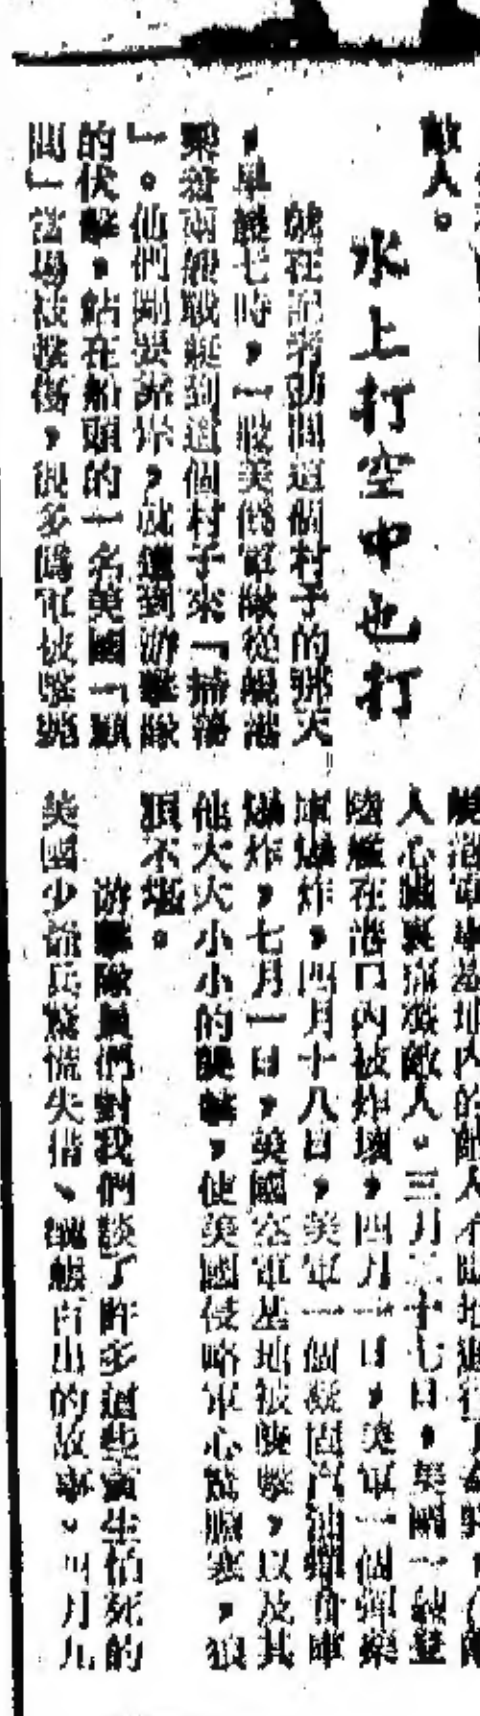 敵人。
水上打空中也打
就在記者訪問這個村子的那天
，早晨七時，一股美僞軍隊從峴港
乘着兩艘戰艇到這個村子來「掃蕩
」。他們剛要靠岸，就遭到游擊隊
的伏擊，站在船頭的一名美國「顧
問」當場被擊傷，很多僞軍被擊斃
峴港軍事基地內的敵人不斷地進行
人心臟裏痛殲敵人。三月二十七日，美國一艘登
陸艦在港口內被炸壞，四月一日，美軍一個彈藥
庫爆炸，四月十八日，美軍一個凝固汽油彈倉庫
爆炸，七月一日，美國空軍基地被襲擊，以及其
他大大小小的襲擊，使美國侵略軍心驚膽寒，狼
狽不堪。
游擊隊員們對我們談了許多這些貪生怕死的
美國少爺兵驚慌失措、醜態百出的故事。四月九